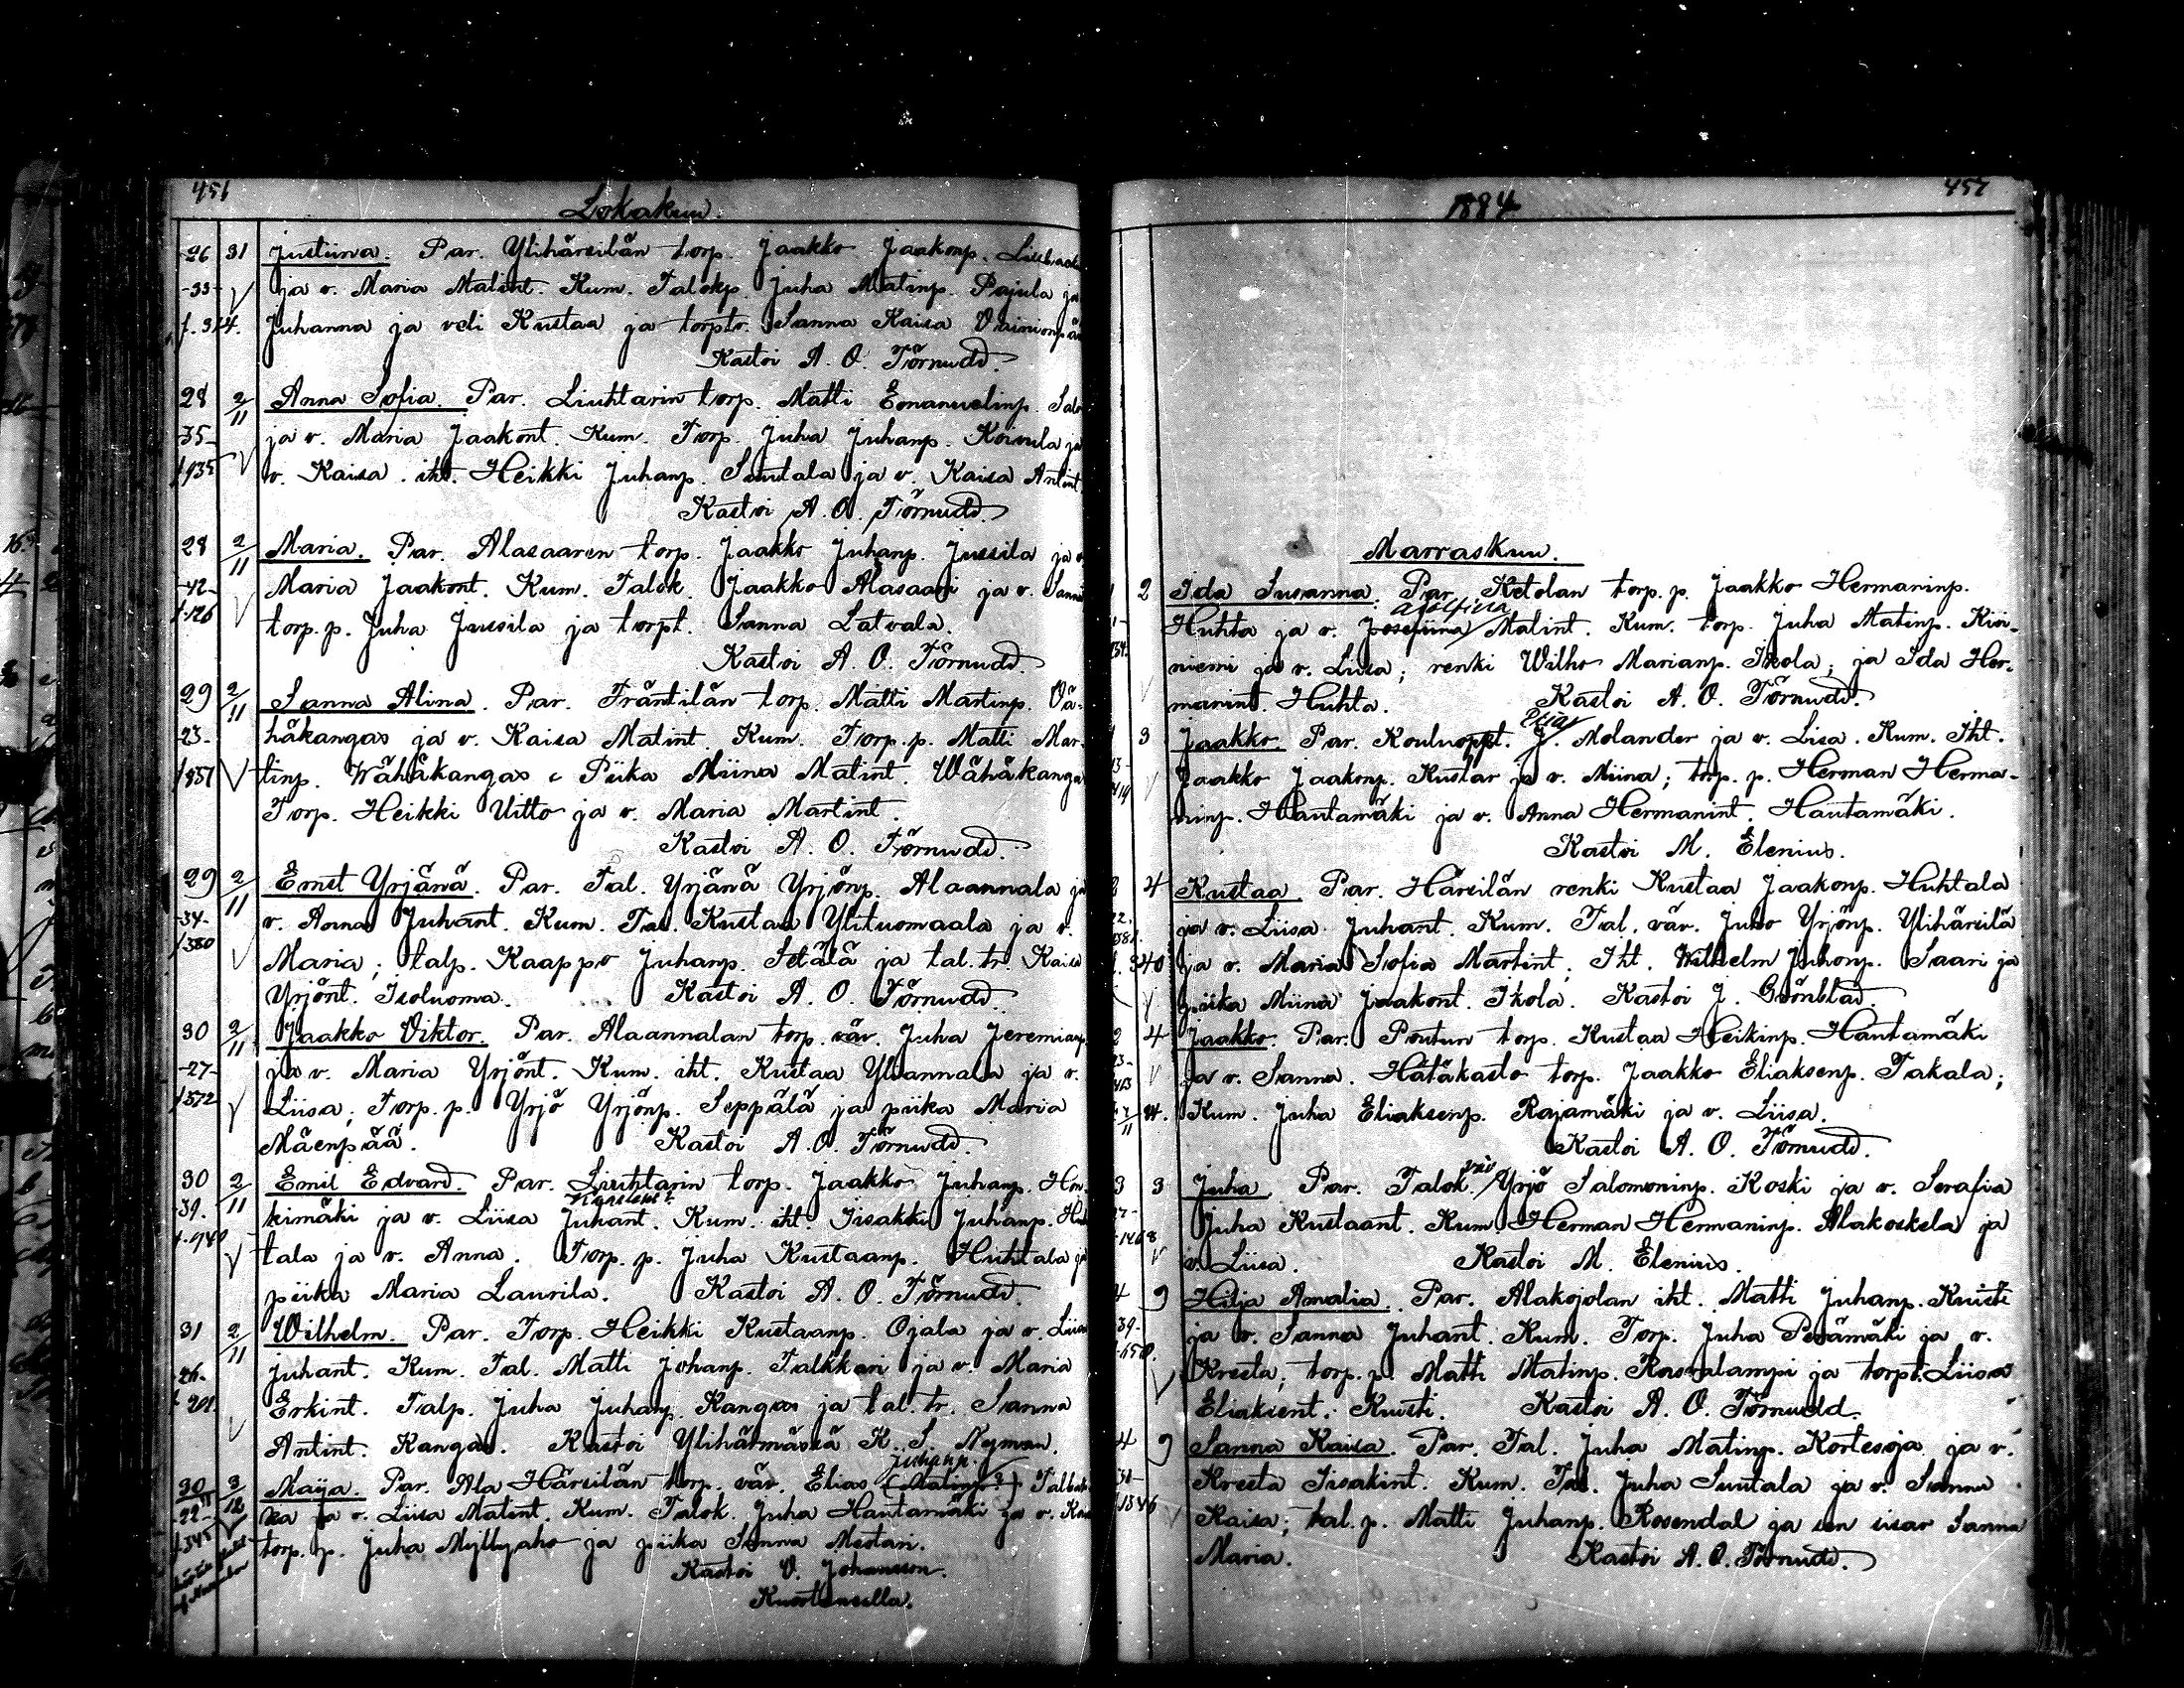 451
Lokakuu.
26 31 Justiina. Par. Ylihärsilän torp. Jaakko Jaakonp.
-33- ja v. Maria Matint. Kum. Talokp. Juha Matinp. Pajula ja
f. 314. Juhanna ja veli Kustaa ja torptr. Sanna Kaisa Vainionpää
Kastoi A. O. Törnudd.
28 2/11 Anna Sofia. Par. Liuhtarin torp. Matti Emanuelinp. Salo
-35- ja v. Maria Jaakont. Kum. Torp. Juha Juhanp. Koivula ja
f 935 v. Kaisa. iht. Heikki Juhanp. Suutala ja v. Kaisa Antint.
Kastoi A. O. Törnudd.
28 2/11 Maria. Par. Alasaaren torp. Jaakko Juhanp. Jussila ja v.
-42- Maria Jaakont. Kum. Talok. Jaakko Alasaari ja v. Sanna
f. 126 torp. p. Juha Jussila ja torpt. Sanna Latvala.
Kastoi A. O. Törnudd.
29 2/11 Sanna Alina. Par. Träntilän torp. Matti Martinp. Vä-
-23- häkangas ja v. Kaisa Matint. Kum. Torp. p. Matti Mar-
f 857 tinp. Wähäkangas Piika Miina Matint. Wähäkangas
Torp. Heikki Uitto ja v. Maria Martint.
Kastoi A. O. Törnudd.
29 2/11 Ernst Yrjänä. Par. Tal. Yrjänä Yrjönp. Alaannala ja
-34- v. Anna Juhant. Kum. Tal. Kustaa Ylituomaala ja v.
f 380 Maria; talp. Kaappo Juhanp. Setälä ja tal. tr. Kaisa
Yrjönt. Isoluoma. Kastoi A. O. Törnudd.
30 2/11 Jaakko Viktor. Par. Alaannalan torp. väv. Juha Jeremianp.
-27- ja v. Maria Yrjönt. Kum. iht. Kustaa Yliannala ja v.
f 372 Liisa; Torp. p. Yrjö Yrjönp. Seppälä ja piika Maria
Mäenpää. Kastoi A. O. Törnudd.
30 2/11 Emil Edvard. Par. Liuhtarin torp. Jaakko Juhanp. Hon-
39. kimäki ja v. Liisa Juhant. Kum. iht. Iisakki Juhanp. Huh-
f. 940 tala ja v. Anna. Torp. p. Juha Kustaanp. Huhtala ja
piika Maria Laurila. Kastoi A. O. Törnudd.
31 2/11 Wilhelm. Par. Torp. Heikki Kustaanp. Ojala ja v. Liisa
-26- Juhant. Kum. Tal. Matti Johanp. Talkkari ja v. Maria
f 201 Erkint. Talp. Juha Juhanp. Kangas ja tal. tr. Sanna
Antint. Kangas. Kastoi Ylihärmässä K. S. Nyman.
Juhanp.
30 3/12 Maija. Par. Ala Härsilän torp. väv. Elias (Matinp.?)
-22- ka ja v. Liisa Matint. Kum. Talok. Juha Hautamäki ja v.
f 345 torp. p. Juha Myllyaho ja piika Sanna Mestari.
Kastoi O. Johansson.
Kuortaneella.
1884
457
Marraskuu.
2 Ida Susanna. Par. Ketolan torp. p. Jaakko Hermaninp.
adolfiina
Huhta ja v. Josefiina Matint. Kum. torp. Juha Matinp. Kivi-
niemi ja v. Liisa; renki Wilho Marianp. Ikola; ja Ida Her-
manint. Huhta. Kastoi A. O. Törnudd.
Elias
3 Jaakko. Par. Kouluoppet. J. Molander ja v. Lisa. Kum. Iht.
Jaakko Jaakonp. Kustar ja v. Miina; torp. p. Herman Herma-
ninp. Hautamäki ja v. Anna Hermanint. Hautamäki.
Kastoi M. Elenius.
4 Kustaa. Par. Härsilän renki Kustaa Jaakonp. Huhtala
ja v. Liisa Juhant. Kum. Tal. väv. Juho Yrjönp. Ylihärsilä
ja v. Maria Sofia Martint; Iht. Wilhelm Juhonp. Saari ja
piika Miina Jaakont. Ikola. Kastoi J. Grönblad.
2 4 Jaakko. Par. Poutun torp. Kustaa Heikinp. Hautamäki
ja v. Sanna. Hätäkasto torp. Jaakko Eliaksenp. Takala;
Kum. Juha Eliaksenp. Rajamäki ja v. Liisa.
Kastoi A. O. Törnudd.
3 3 Juha Par. Talok. väv Yrjö Salomoninp. Koski ja v. Serafia
Juha Kustaant. Kum Herman Hermaninp. Alakoskela ja
v. Liisa. Kastoi M. Elenius.
4 9 Hilja Amalia. Par. Alakojolan iht. Matti Juhanp. Kuisti
39- ja v. Sanna Juhant. Kum. Torp. Juha Perämäki ja v.
Kresta; torp. p. Matti Matinp. Kaskalampi ja torpt. Liisa
Eliaksent. Kuisti. Kastoi A. O. Törnudd.
4 9 Sanna Kaisa. Par. Tal. Juha Matinp. Kortesoja ja v.
Kresta Iisakint. Kum. Tal. Juha Suutala ja v. Sanna
Kaisa; tal. p. Matti Juhanp. Rosendal ja sen sisar Sanna
Maria. Kastoi A. O. Törnudd.